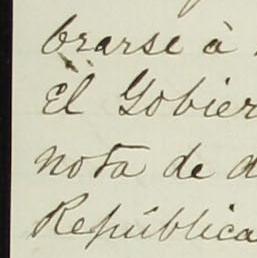 brarse à
El Gobier
nota de d
República